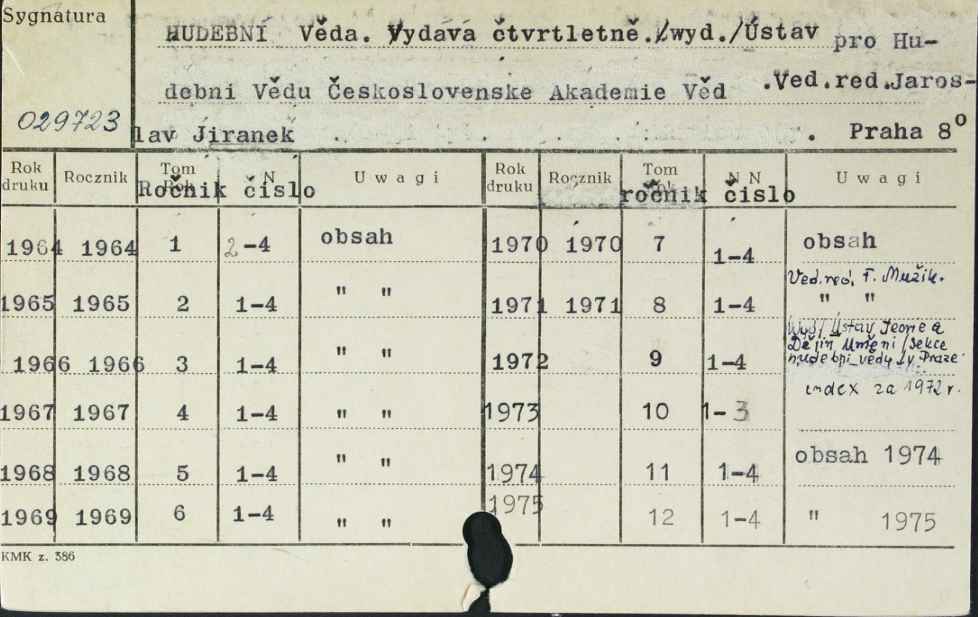 Sygnatura
029723
HUDEBNÍ Věda. Vydává čtvrtletně./wyd./Ústav pro Hu-
debni Vědu Československe Akademie Věd .Ved.red.Jaros-
lav Jiranek . Praha 8°
Rok druku Rocznik Tom N U w a g i Rok druku Rocznik Tom N N U w a g i
Ročnik čislo ročnik čislo
1964 1964 1 2-4 obsah 1970 1970 7 1-4 obsah
Ved.red. F. Mužik.
1965 1965 2 1-4 " " 1971 1971 8 1-4 " "
Wyd/Ústav Teorie a
Dějin Uměni/Sekce
hudebni vědy/v Praze
1966 1966 3 1-4 " " 1972 9 1-4
index za 1972 r.
1967 1967 4 1-4 " " 1973 10 1-3
1968 1968 5 1-4 " " 1974 11 1-4 obsah 1974
1969 1969 6 1-4 " " 1975 12 1-4 " 1975
KMK z. 386